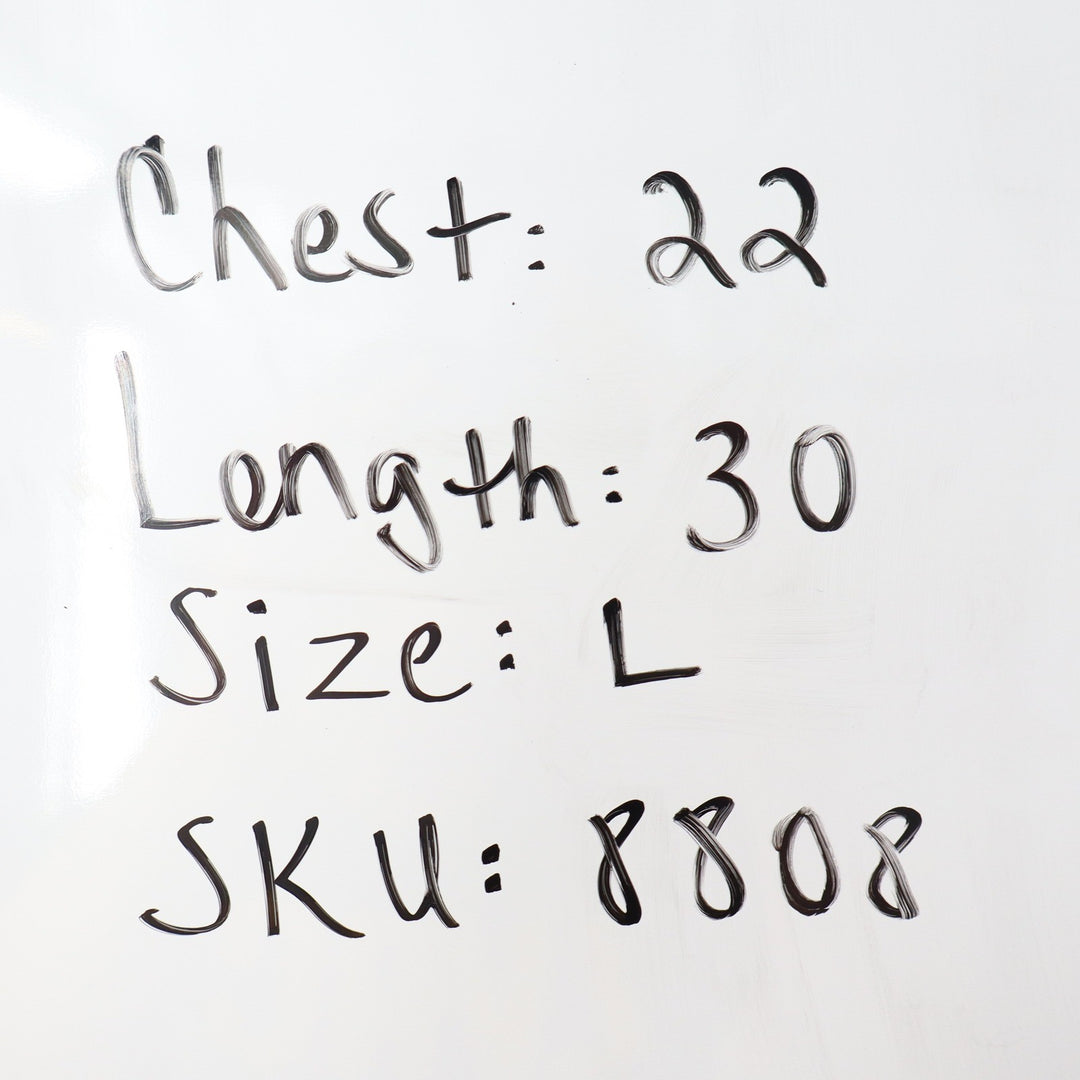 Chest: 22
Length: 30
Size: L
SKU: 8808